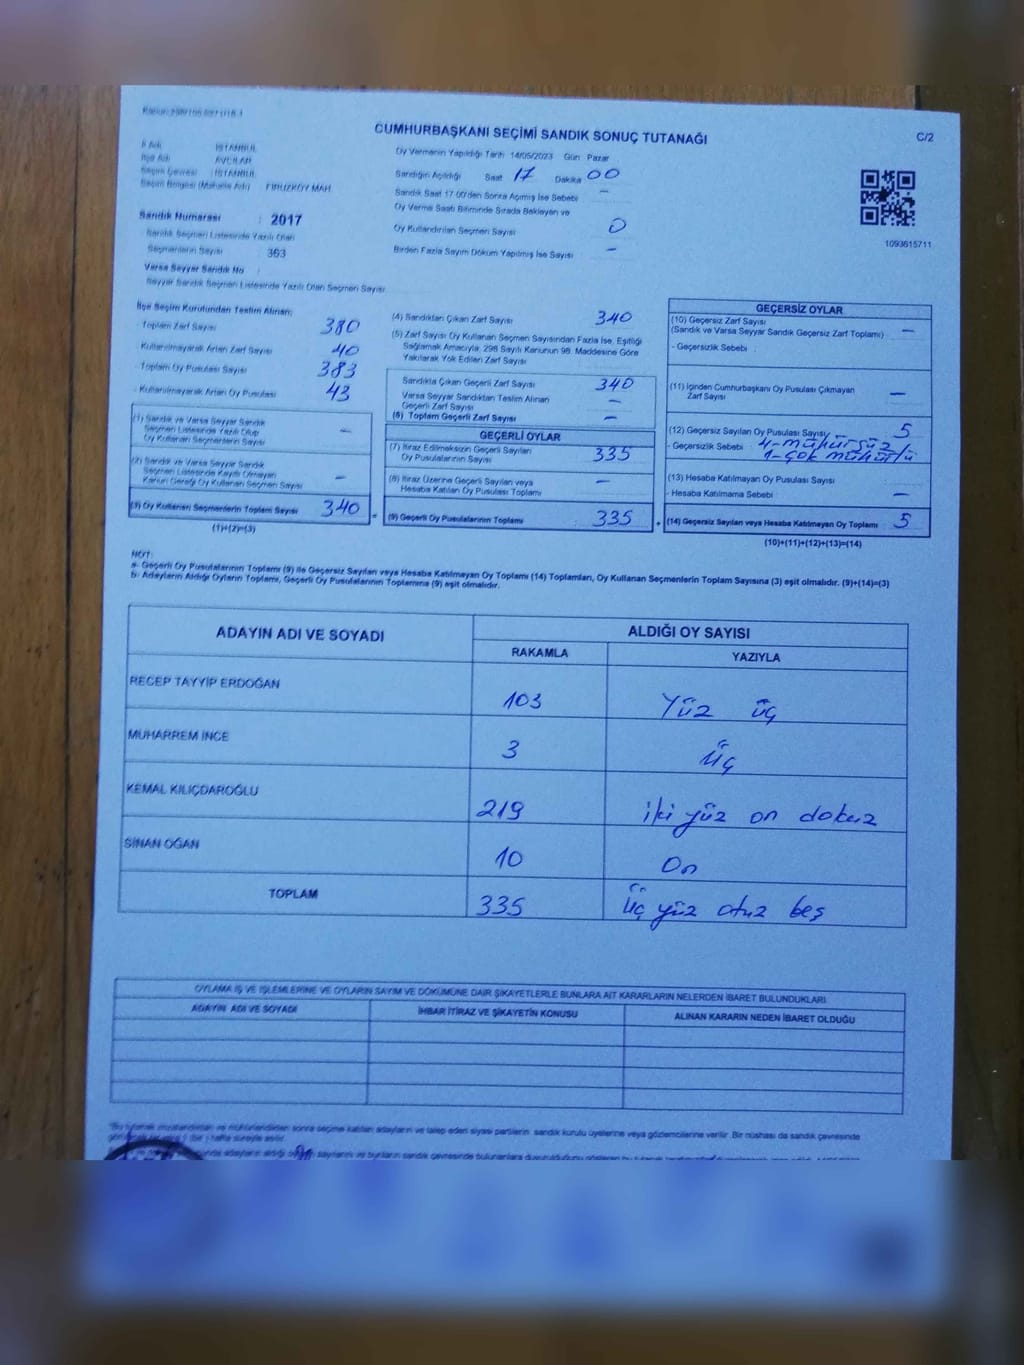 CUMHURBAŞKANI SEÇİMİ SANDIK SONUÇ TUTANAĞI
C/2
İl Adı : İSTANBUL
İlçe Adı : AVCILAR
Seçim Çevresi : İSTANBUL
Seçim Bölgesi (Mahalle Adı) : FİRUZKÖY MAH.
Sandık Numarası : 2017
Sandık Seçmen Listesinde Yazılı Olan
Seçmenlerin Sayısı : 363
Varsa Seyyar Sandık No :
Seyyar Sandık Seçmen Listesinde Yazılı Olan Seçmen Sayısı:
Oy Vermenin Yapıldığı Tarih 14/05/2023 Gün Pazar
Sandığın Açıldığı Saat 17 Dakika 00
Sandık Saat 17.00'den Sonra Açılmış İse Sebebi –
Oy Verme Saati Bitiminde Sırada Bekleyen ve
Oy Kullandırılan Seçmen Sayısı 0
Birden Fazla Sayım Döküm Yapılmış İse Sayısı –
1093615711
İlçe Seçim Kurulundan Teslim Alınan;
- Toplam Zarf Sayısı 380
- Kullanılmayarak Artan Zarf Sayısı 40
- Toplam Oy Pusulası Sayısı 383
- Kullanılmayarak Artan Oy Pusulası 43
(1) Sandık ve Varsa Seyyar Sandık
Seçmen Listesinde Yazılı Olup
Oy Kullanan Seçmenlerin Sayısı –
(2) Sandık ve Varsa Seyyar Sandık
Seçmen Listesinde Kayıtlı Olmayan
Kanun Gereği Oy Kullanan Seçmen Sayısı –
(3) Oy Kullanan Seçmenlerin Toplam Sayısı 340
(1)+(2)=(3)
(4) Sandıktan Çıkan Zarf Sayısı 340
(5) Zarf Sayısı Oy Kullanan Seçmen Sayısından Fazla İse, Eşitliği
Sağlamak Amacıyla, 298 Sayılı Kanunun 98. Maddesine Göre
Yakılarak Yok Edilen Zarf Sayısı
Sandıkta Çıkan Geçerli Zarf Sayısı 340
Varsa Seyyar Sandıktan Teslim Alınan
Geçerli Zarf Sayısı –
(6) Toplam Geçerli Zarf Sayısı –
GEÇERLİ OYLAR
(7) İtiraz Edilmeksizin Geçerli Sayılan
Oy Pusulalarının Sayısı 335
(8) İtiraz Üzerine Geçerli Sayılan veya
Hesaba Katılan Oy Pusulası Toplamı –
= (9) Geçerli Oy Pusulalarının Toplamı : 335
GEÇERSİZ OYLAR
(10) Geçersiz Zarf Sayısı
(Sandık ve Varsa Seyyar Sandık Geçersiz Zarf Toplamı) –
- Geçersizlik Sebebi :
(11) İçinden Cumhurbaşkanı Oy Pusulası Çıkmayan
Zarf Sayısı –
(12) Geçersiz Sayılan Oy Pusulası Sayısı 5
- Geçersizlik Sebebi 4-mühürsüz
1-çok mühürlü
(13) Hesaba Katılmayan Oy Pusulası Sayısı :
- Hesaba Katılmama Sebebi –
+ (14) Geçersiz Sayılan veya Hesaba Katılmayan Oy Toplamı 5
(10)+(11)+(12)+(13)=(14)
NOT:
a- Geçerli Oy Pusulalarının Toplamı (9) ile Geçersiz Sayılan veya Hesaba Katılmayan Oy Toplamı (14) Toplamları, Oy Kullanan Seçmenlerin Toplam Sayısına (3) eşit olmalıdır. (9)+(14)=(3)
b- Adayların Aldığı Oyların Toplamı, Geçerli Oy Pusulalarının Toplamına (9) eşit olmalıdır.
ADAYIN ADI VE SOYADI
ALDIĞI OY SAYISI
RAKAMLA YAZIYLA
RECEP TAYYİP ERDOĞAN 103 Yüz üç
MUHARREM İNCE 3 üç
KEMAL KILIÇDAROĞLU 219 iki yüz on dokuz
SİNAN OĞAN 10 On
TOPLAM 335 üç yüz otuz beş
OYLAMA İŞ VE İŞLEMLERİNE VE OYLARIN SAYIM VE DÖKÜMÜNE DAİR ŞİKAYETLERLE BUNLARA AİT KARARLARIN NELERDEN İBARET BULUNDUKLARI
ADAYIN ADI VE SOYADI
İHBAR İTİRAZ VE ŞİKAYETİN KONUSU
ALINAN KARARIN NEDEN İBARET OLDUĞU
*Bu tutanak imzalandıktan ve mühürlendikten sonra seçime katılan adayların ve talep eden siyasi partilerin sandık kurulu üyelerine veya gözlemcilerine verilir. Bir nüshası da sandık çevresinde